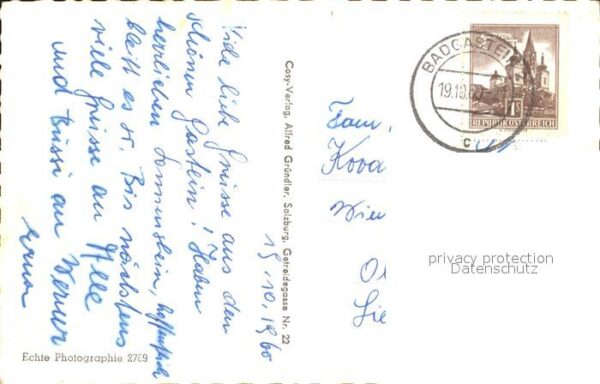 19.10.1960
Viele liebe Grüsse aus dem
schönen Gastein! Haben
herrlichen Sonnenschein, hoffentlich
bleibt es so. Bis nächstens
viele Grüsse an Alle
und Bussi an Werner
Erna
Cosy-Verlag, Alfred Gründler, Salzburg, Getreidegasse Nr. 22
Echte Photographie 2769
BADGASTEIN
19.10.60
C
REPUBLIK ÖSTERREICH
Fam.
Wien
privacy protection
Datenschutz